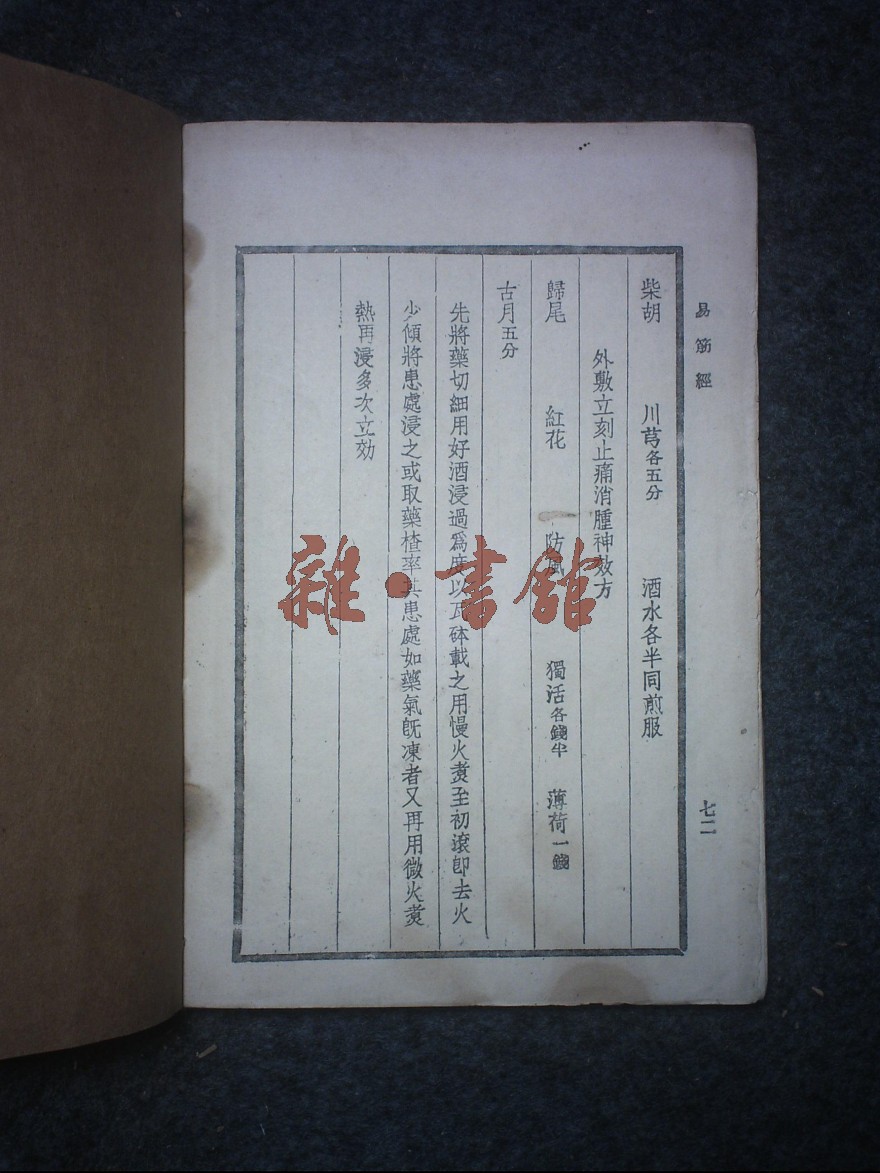 易筋經
七二
柴胡 川芎各五分 酒水各半同煎服
外敷立刻止痛消腫神效方
歸尾 紅花 防風 獨活各錢半 薄荷一錢
古月五分
先將藥切細用好酒浸過為度以瓦砵載之用慢火煑至初滾卽去火
少傾將患處浸之或取藥楂率其患處如藥氣旣凍者又再用微火煑
熱再浸多次立効
雜·書館